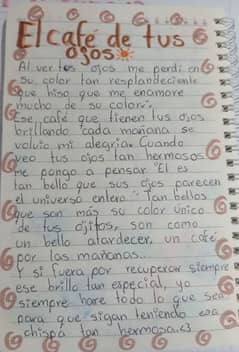 El café de tus
ojos
Al ver tus ojos me perdí en
su color tan resplandeciente
que hiso que me enamore
mucho de su color.
Ese café que tienen tus ojos
brillando cada mañana se
volvio mi alegria. Cuando
veo tus ojos tan hermosos
me pongo a pensar "El es
tan bello que sus ojos parecen
el universo entero" Tan bellos
que son más su color único
de tus ojitos, son como
un bello atardecer, un café
por las mañanas..
Y si fuera por recuperar siempre
ese brillo tan especial, yo
siempre hare todo lo que sea
para que sigan teniendo esa
chispa tan hermosa.<3